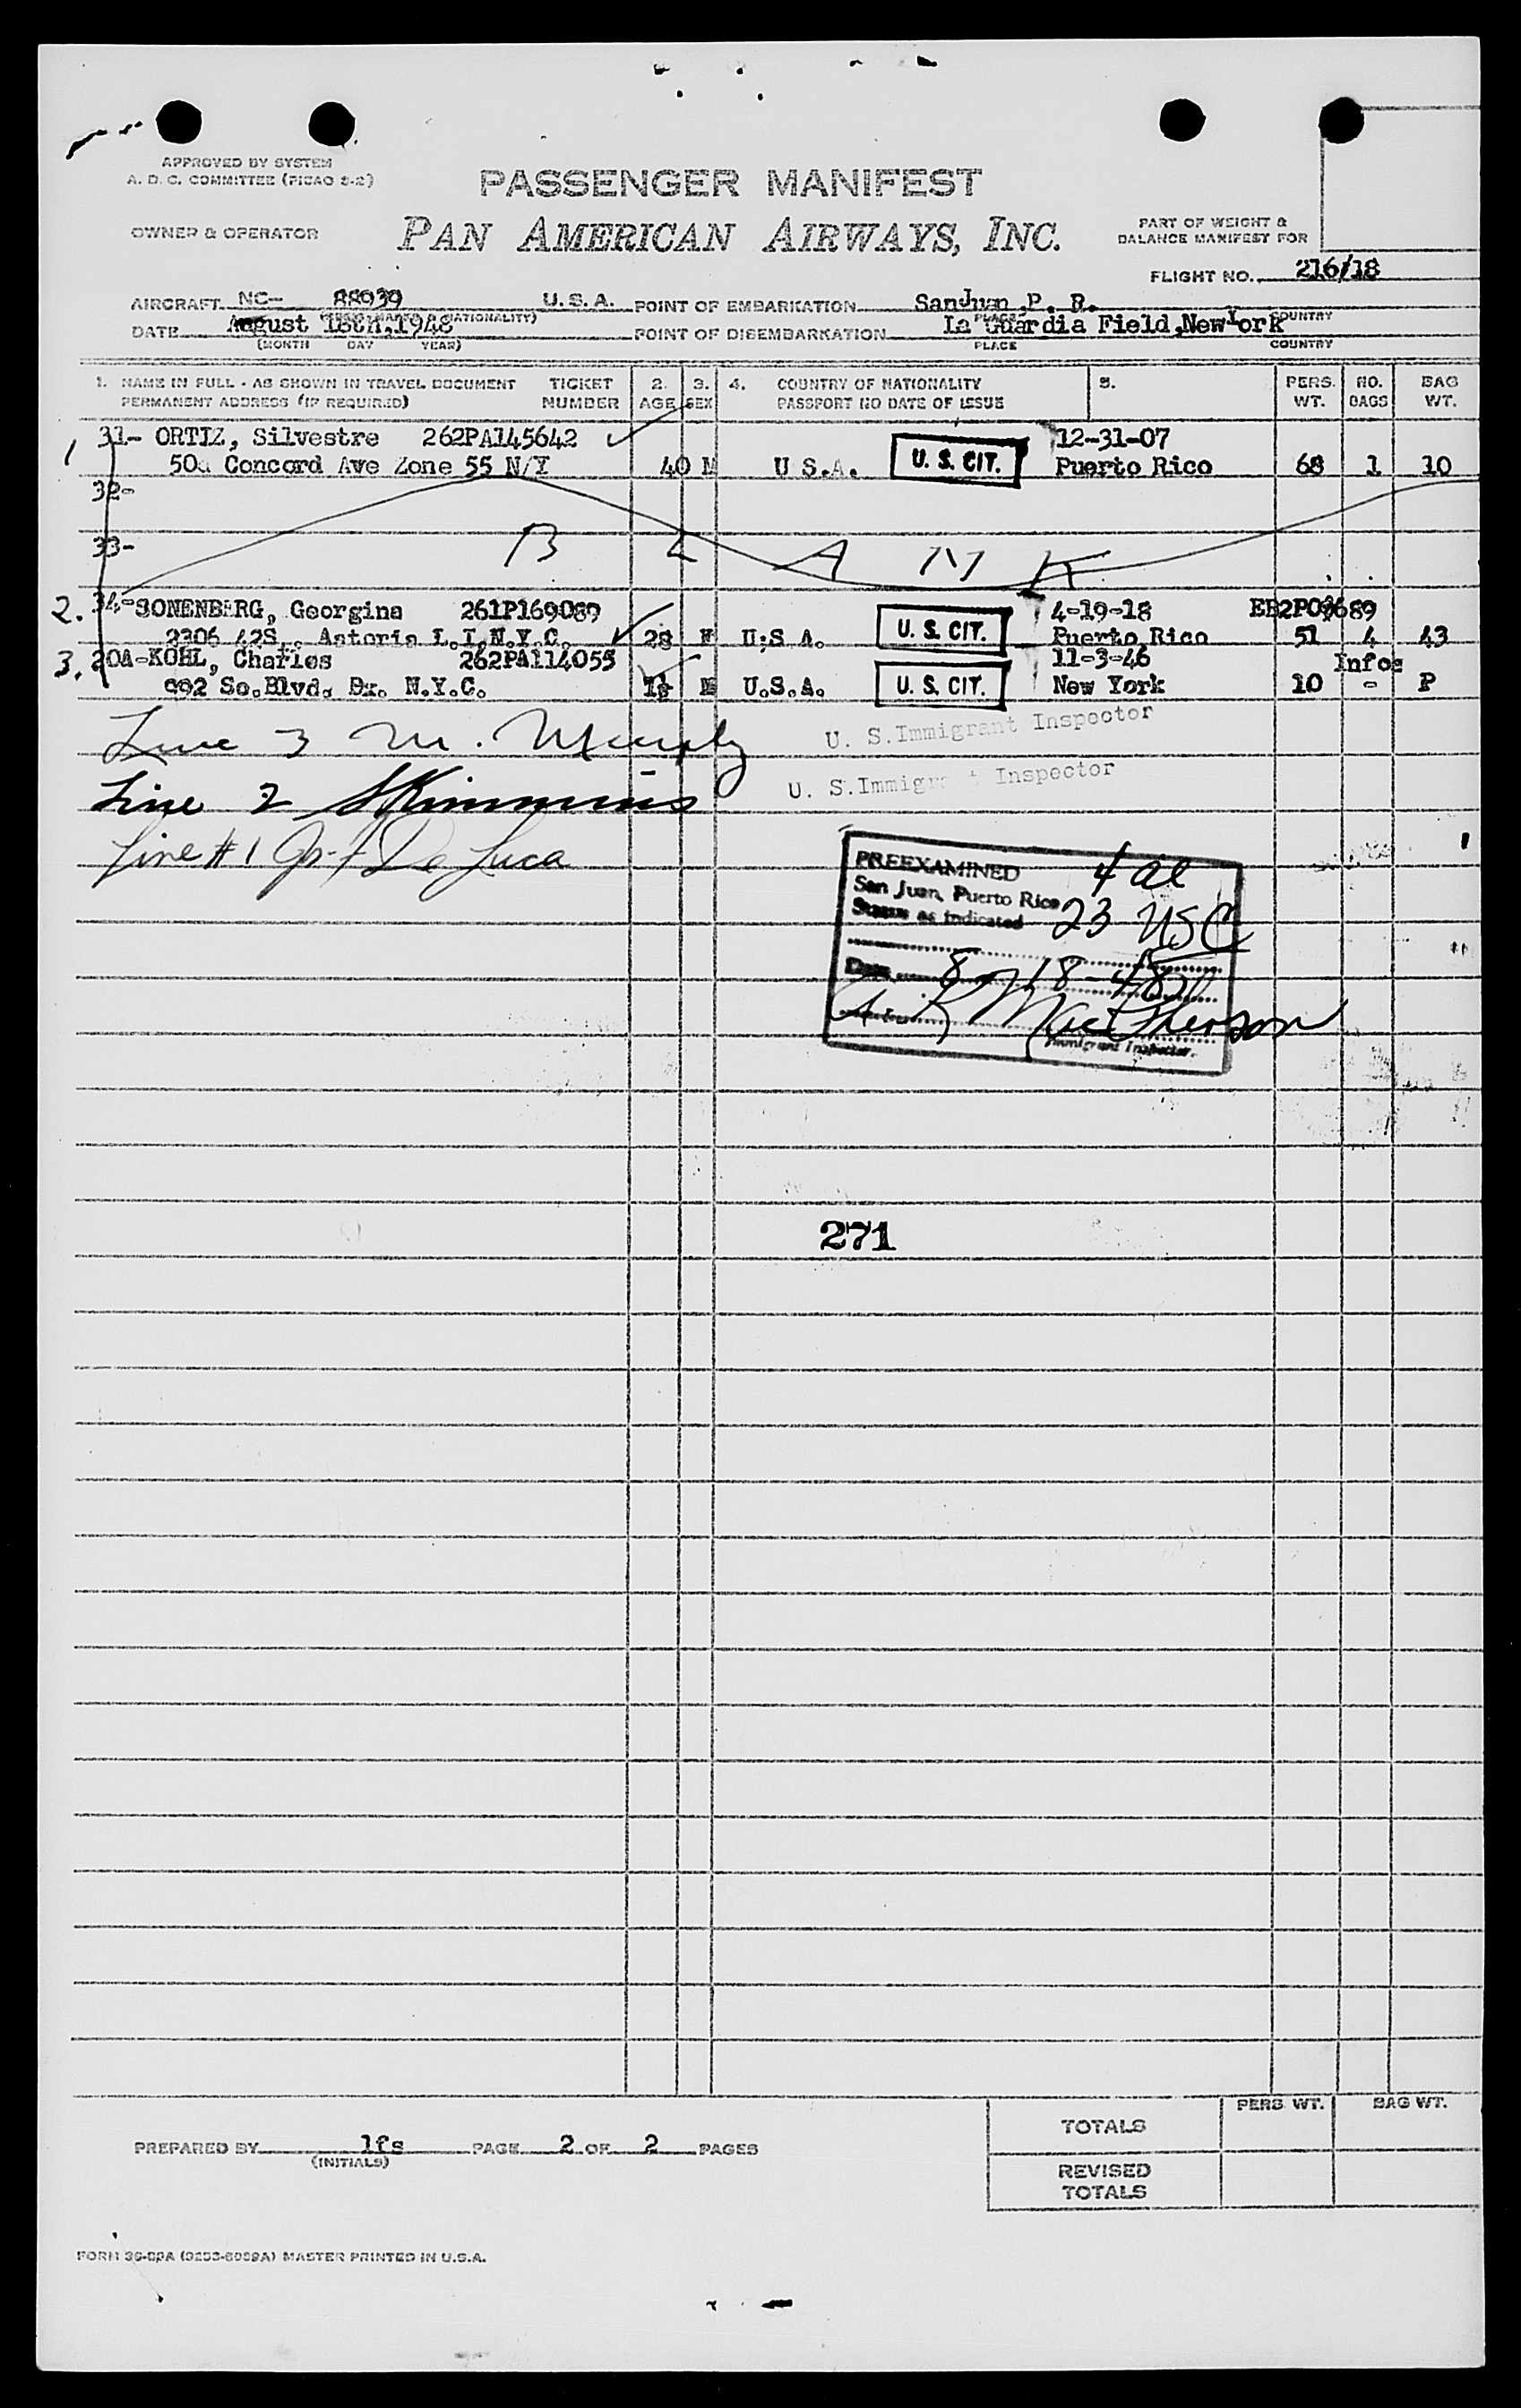 APPROVED BY SYSTEM
A. D. C. COMMITTEE (PICAO S-2)
PASSENGER MANIFEST
OWNER & OPERATOR
PAN AMERICAN AIRWAYS, INC.
PART OF WEIGHT &
BALANCE MANIFEST FOR
FLIGHT NO. 216/18
AIRCRAFT NC- 88939 U.S.A. POINT OF EMBARKATION SanJuan P. R.
DATE August 18th, 1948 POINT OF DISEMBARKATION La Guardia Field, NewYork
(MONTH DAY YEAR) PLACE COUNTRY
1. NAME IN FULL - AS SHOWN IN TRAVEL DOCUMENT TICKET 2. 3. 4. COUNTRY OF NATIONALITY 5. PERS. NO. BAG
PERMANENT ADDRESS (IF REQUIRED) NUMBER AGE SEX PASSPORT NO DATE OF ISSUE WT. BAGS WT.
1 31- ORTIZ, Silvestre 262PA145642 12-31-07
Concord Ave Zone 55 N/Y 40 M U S.A. U. S. CIT. Puerto Rico 68 1 10
32-
33- BLANK
2. 34-SONENBERG, Georgina 261P169089 4-19-18
2306 42S., Astoria L.I.N.Y.C. 28 U.S.A. U. S. CIT. Puerto Rico 51 4 43
3. 20A-KOHL, Charles 262PA114055 11-3-46 Infos
So.Blvd. Bx. N.Y.C. M U.S.A. U. S. CIT. New York 10 - P
Line 3 M. Murphy U. S. Immigrant Inspector
Line 2 SKimmins U. S. Immigrant Inspector
Line #1 De Luca
PREEXAMINED 4 al
San Juan, Puerto Rico
Status as indicated 23 USC
Date 8-18-48
MacPherson
Immigrant Inspector.
271
PERS. WT. BAG WT.
TOTALS
PREPARED BY lfs PAGE 2 OF 2 PAGES
(INITIALS)
REVISED
TOTALS
MASTER PRINTED IN U.S.A.